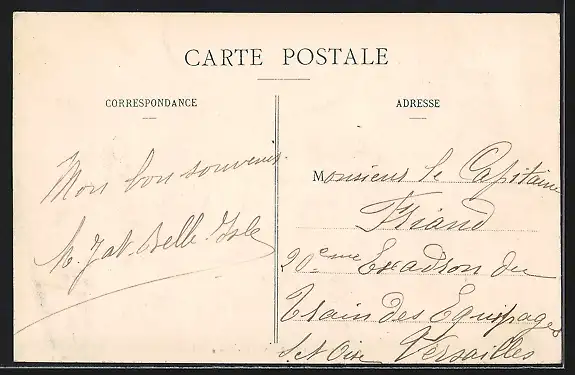 CARTE POSTALE
CORRESPONDANCE
ADRESSE
Mon bon souvenir.
Belle-Isle
Monsieur le Capitaine
Friand
20eme Escadron du
Train des Equipages
S. et Oise Versailles